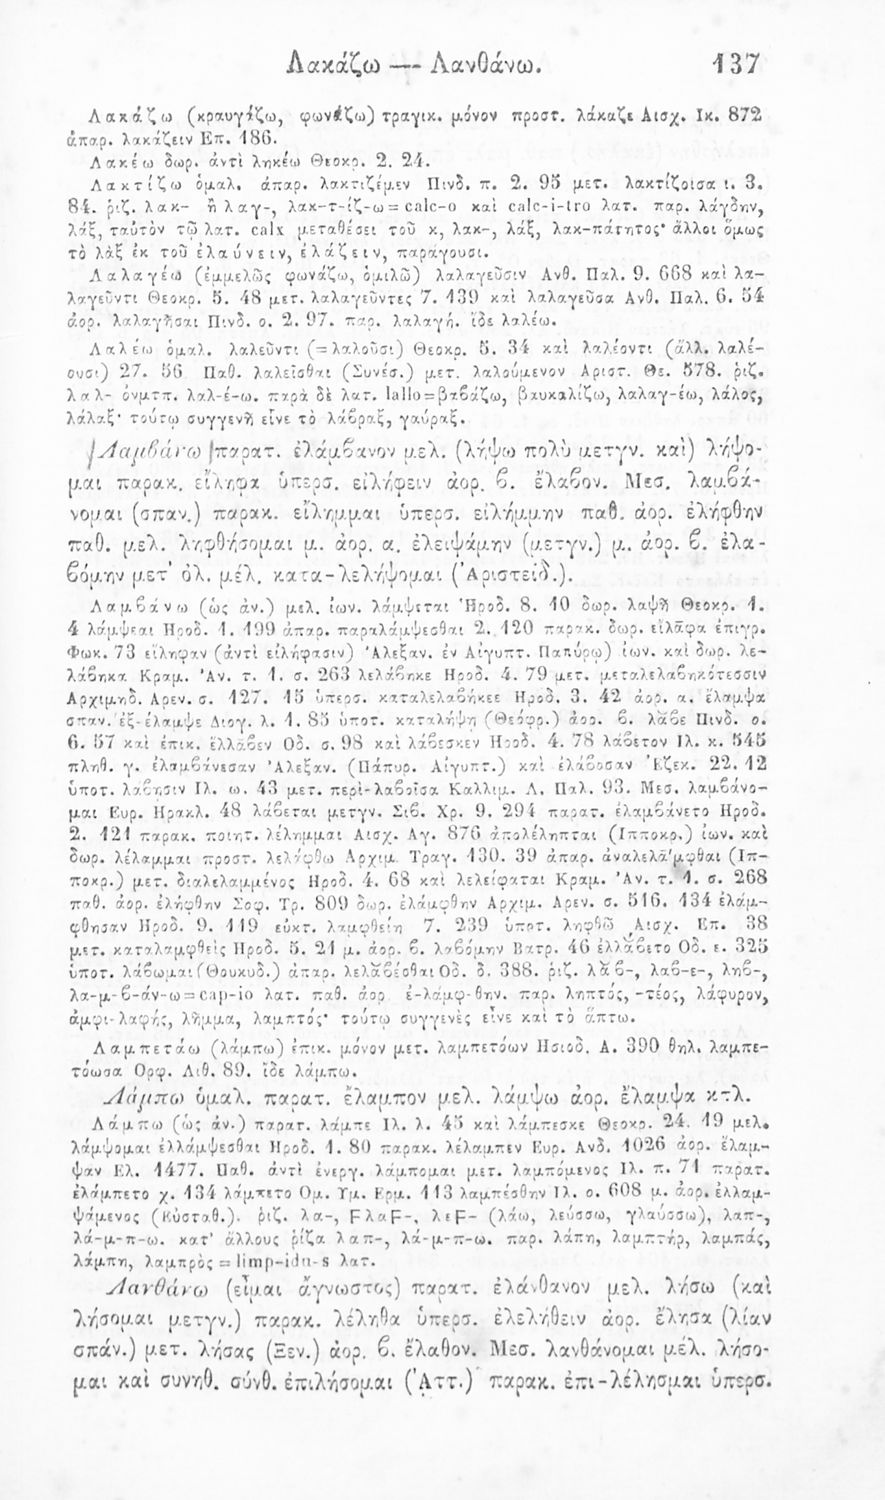 Λακάζω — Λανθάνω. 137
Λακάζω (κραυγάζω, φωνάζω) τραγικ. μόνον προστ. λάκαζε Αισχ. Ικ. 872
ἀπαρ. λακάζειν Επ. 186.
Λακέω δωρ. ἀντὶ ληκέω Θεοκρ. 2. 24.
Λακτίζω ὁμαλ. ἀπαρ. λακτιζέμεν Πινδ. π. 2. 95 μετ. λακτίζοισα ι. 3.
84. ῥιζ. λακ- ἢ λαγ-, λακ-τ-ίζ-ω = calc-o καὶ calc-i-tro λατ. παρ. λάγδην,
λάξ, ταὐτὸν τῷ λατ. calx μεταθέσει τοῦ κ, λακ-, λάξ, λακ-πάτητος· ἄλλοι ὅμως
τὸ λὰξ ἐκ τοῦ ἐλαύνειν, ἐλάζειν, παράγουσι.
Λαλαγέω (ἐμμελῶς φωνάζω, ὁμιλῶ) λαλαγεῦσιν Ανθ. Παλ. 9. 668 καὶ λα-
λαγεῦντι Θεοκρ. 5. 48 μετ. λαλαγεῦντες 7. 139 καὶ λαλαγεῦσα Ανθ. Παλ. 6. 54
ἀορ. λαλαγῆσαι Πινδ. ο. 2. 97. παρ. λαλαγή. ἴδε λαλέω.
Λαλέω ὁμαλ. λαλεῦντι (= λαλοῦσι) Θεοκρ. 5. 34 καὶ λαλέοντι (ἄλλ. λαλέ-
ουσι) 27. 56 Παθ. λαλεῖσθαι (Συνέσ.) μετ. λαλούμενον Αριστ. Θε. 578. ῥιζ.
λαλ- ὀνμτπ. λαλ-έ-ω. παρὰ δὲ λατ. lallo = βαβάζω, βαυκαλίζω, λαλαγ-έω, λάλος,
λάλαξ· τούτῳ συγγενῆ εἶνε τὸ λάβραξ, γαύραξ.
Λαμβάνω παρατ. ἐλάμβανον μελ. (λήψω πολὺ μετγν. καὶ) λήψο-
μαι παρακ. εἴληφα ὑπερσ. εἰλήφειν ἀορ. β. ἔλαβον. Μεσ. λαμβά-
νομαι (σπαν.) παρακ. εἴλημμαι ὑπερσ. εἰλήμμην παθ. ἀορ. ἐλήφθην
παθ. μελ. ληφθήσομαι μ. ἀορ. α. ἐλειψάμην (μετγν.) μ. ἀορ. β. ἐλα-
βόμην μετ' ὀλ. μέλ. κατα-λελήψομαι (Ἀριστείδ.).
Λαμβάνω (ὡς ἀν.) μελ. ἰων. λάμψεται Ἡροδ. 8. 10 δωρ. λαψῇ Θεοκρ. 1.
4 λάμψεαι Ηροδ. 1. 199 ἀπαρ. παραλάμψεσθαι 2. 120 παρακ. δωρ. εἰλᾶφα ἐπιγρ.
Φωκ. 73 εἴληφαν (ἀντὶ εἰλήφασιν) Ἀλεξαν. ἐν Αἰγυπτ. Παπύρῳ) ἰων. καὶ δωρ. λε-
λάβηκα Κραμ. Ἀν. τ. 1. σ. 263 λελάβηκε Ηροδ. 4. 79 μετ. μεταλελαβηκότεσσιν
Αρχιμηδ. Αρεν. σ. 127. 15 ὑπερσ. καταλελαβήκεε Ηροδ. 3. 42 ἀορ. α. ἔλαμψα
σπαν. ἐξ-έλαμψε Διογ. λ. 1. 85 ὑποτ. καταλήψῃ (Θεόφρ.) ἀορ. β. λᾶβε Πινδ. ο.
6. 57 καὶ ἐπικ. ἔλλαβεν Οδ. σ. 98 καὶ λάβεσκεν Ηροδ. 4. 78 λάβετον Ιλ. κ. 545
πληθ. γ. ἐλαμβάνεσαν Ἀλεξαν. (Πάπυρ. Αἰγυπτ.) καὶ ἐλάβοσαν Ἐζεκ. 22. 12
ὑποτ. λάβησιν Ιλ. ω. 43 μετ. περι-λαβοῖσα Καλλιμ. Λ. Παλ. 93. Μεσ. λαμβάνο-
μαι Ευρ. Ηρακλ. 48 λάβεται μετγν. Σιβ. Χρ. 9. 294 παρατ. ἐλαμβάνετο Ηροδ.
2. 121 παρακ. ποιητ. λέλημμαι Αισχ. Αγ. 876 ἀπολέληπται (Ιπποκρ.) ἰων. καὶ
δωρ. λέλαμμαι προστ. λελάφθω Αρχιμ. Τραγ. 130. 39 ἀπαρ. ἀναλελάμφθαι (Ιπ-
ποκρ.) μετ. διαλελαμμένος Ηροδ. 4. 68 καὶ λελείφαται Κραμ. Ἀν. τ. 1. σ. 268
παθ. ἀορ. ἐλήφθην Σοφ. Τρ. 809 δωρ. ἐλάμφθην Αρχιμ. Αρεν. σ. 516. 134 ἐλάμ-
φθησαν Ηροδ. 9. 119 εὐκτ. λαμφθείη 7. 239 ὑποτ. ληφθῶ Αισχ. Επ. 38
μετ. καταλαμφθεὶς Ηροδ. 5. 21 μ. ἀορ. β. λαβόμην Βατρ. 46 ἐλλάβετο Οδ. ε. 325
ὑποτ. λάβωμαι (Θουκυδ.) ἀπαρ. λελαβέσθαι Οδ. δ. 388. ῥιζ. λαβ-, λαβ-ε-, ληβ-,
λα-μ-β-άν-ω = cap-io λατ. παθ. ἀορ ἐ-λάμφ-θην. παρ. ληπτός, -τέος, λάφυρον,
ἀμφι-λαφής, λῆμμα, λαμπτός· τούτῳ συγγενὲς εἶνε καὶ τὸ ἅπτω.
Λαμπετάω (λάμπω) ἐπικ. μόνον μετ. λαμπετόων Ησιοδ. Α. 390 θηλ. λαμπε-
τόωσα Ορφ. Λιθ. 89. ἴδε λάμπω.
Λάμπω ὁμαλ. παρατ. ἔλαμπον μελ. λάμψω ἀορ. ἔλαμψα κτλ.
Λάμπω (ὡς ἀν.) παρατ. λάμπε Ιλ. λ. 45 καὶ λάμπεσκε Θεοκρ. 24. 19 μελ.
λάμψομαι ἐλλάμψεσθαι Ηροδ. 1. 80 παρακ. λέλαμπεν Ευρ. Ανδ. 1026 ἀορ. ἔλαμ-
ψαν Ελ. 1477. Παθ. ἀντὶ ἐνεργ. λάμπομαι μετ. λαμπόμενος Ιλ. π. 71 παρατ.
ἐλάμπετο χ. 134 λάμπετο Ομ. Υμ. Ερμ. 113 λαμπέσθην Ιλ. ο. 608 μ. ἀορ. ἐλλαμ-
ψάμενος (Εὐσταθ.). ῥιζ. λα-, FλαF-, λεF- (λάω, λεύσσω, γλαύσσω), λαπ-,
λά-μ-π-ω. κατ' ἄλλους ῥίζα λαπ-, λά-μ-π-ω. παρ. λάπη, λαμπτήρ, λαμπάς,
λάμπη, λαμπρὸς = limp-idu-s λατ.
Λανθάνω (εἶμαι ἄγνωστος) παρατ. ἐλάνθανον μελ. λήσω (καὶ
λήσομαι μετγν.) παρακ. λέληθα ὑπερσ. ἐλελήθειν ἀορ. ἔλησα (λίαν
σπάν.) μετ. λήσας (Ξεν.) ἀορ. β. ἔλαθον. Μεσ. λανθάνομαι μέλ. λήσο-
μαι καὶ συνηθ. σύνθ. ἐπιλήσομαι (Ἀττ.) παρακ. ἐπι-λέλησμαι ὑπερσ.